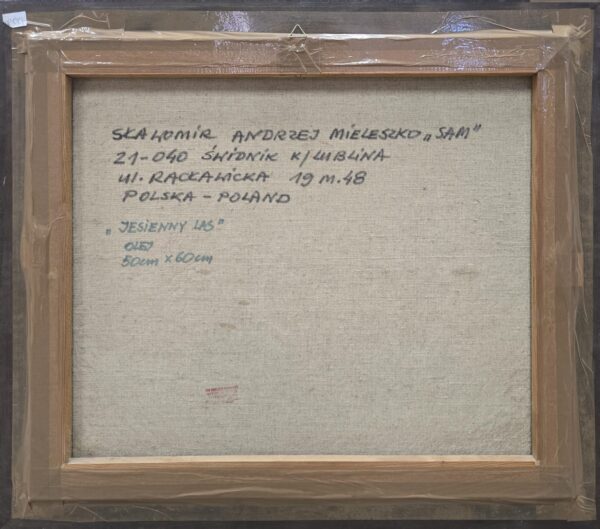 SŁAWOMIR ANDRZEJ MIELESZKO „SAM"
21-040 ŚWIDNIK K/LUBLINA
UL. RACŁAWICKA 19 M.48
POLSKA - POLAND
„JESIENNY LAS"
OLEJ
50cm x 60cm